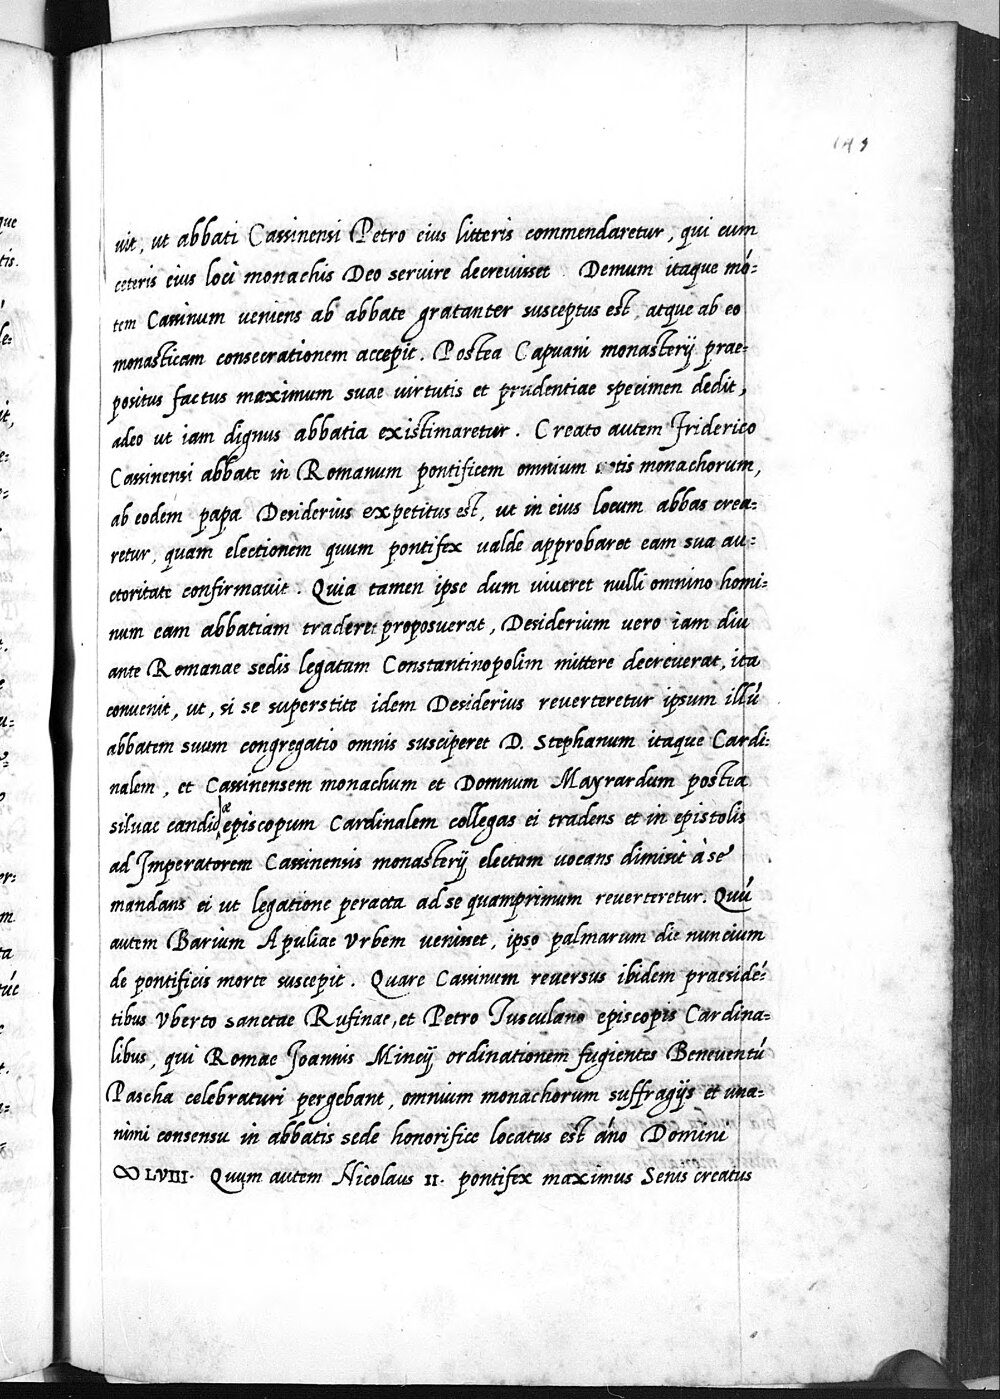 149
uit, ut abbati Cassinensi Petro eius litteris commendaretur, qui cum
ceteris eius loci monachis Deo seruire decreuisset. Demum itaque mō=
tem Cassinum ueniens ab abbate gratanter susceptus est, atque ab eo
monasticam consecrationem accepit. Postea Capuani monasterij prae=
positus factus maximum suae uirtutis et prudentiae specimen dedit,
adeo ut iam dignus abbatia existimaretur. Creato autem Friderico
Cassinensi abbate in Romanum pontificem omnium uotis monachorum,
ab eodem papa Desiderius expetitus est, ut in eius locum abbas crea=
retur, quam electionem quum pontifex ualde approbaret eam sua au=
ctoritate confirmauit. Quia tamen ipse dum uiueret nulli omnino homi=
num eam abbatiam tradere proposuerat, Desiderium uero iam diu
ante Romanae sedis legatum Constantinopolim mittere decreuerat, ita
conuenit, ut, si se superstite idem Desiderius reuerteretur ipsum illū
abbatem suum congregatio omnis susciperet D. Stephanum itaque Cardi=
nalem, et Cassinensem monachum et Domnum Mayrardum postea
siluae candidæ episcopum Cardinalem collegas ei tradens et in epistolis
ad Imperatorem Cassinensis monasterij electum uocans dimisit à se
mandans ei ut legatione peracta ad se quamprimum reuerteretur. Quū
autem Barium Apuliae Vrbem uenisset, ipso palmarum die nuncium
de pontificis morte suscepit. Quare Cassinum reuersus ibidem praesidē=
tibus Vberto sanctae Rufinae, et Petro Tusculano episcopis Cardina=
libus, qui Romae Joannis Mincij ordinationem fugientes Beneuentū
Pascha celebraturi pergebant, omnium monachorum suffragijs et una=
nimi consensu in abbatis sede honorifice locatus est āno Domini
ꝏLVIII. Quum autem Nicolaus II. pontifex maximus Senis creatus